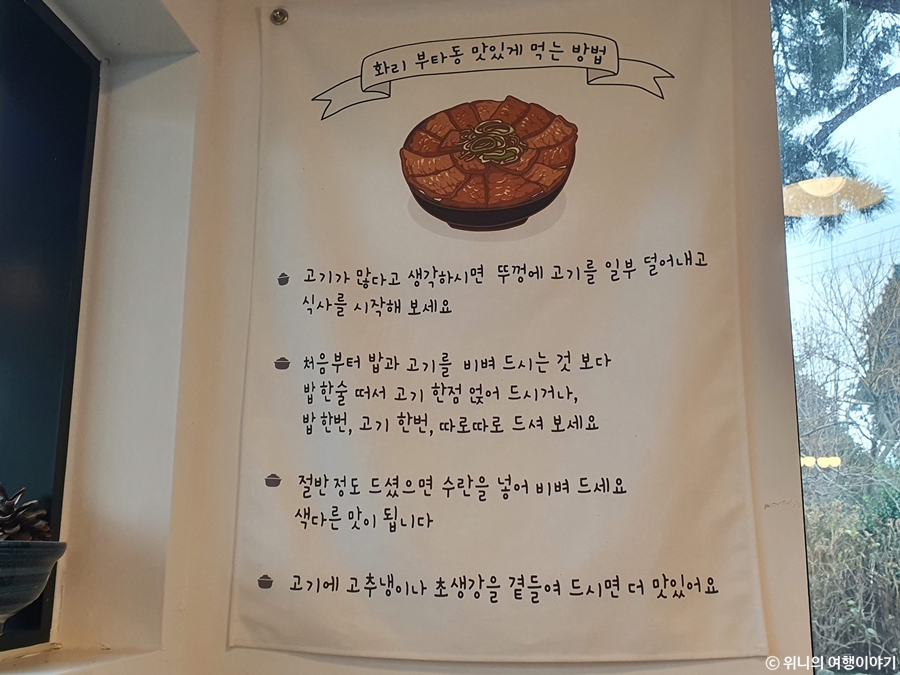 화리 부타동 맛있게 먹는 방법
고기가 많다고 생각하시면 뚜껑에 고기를 일부 덜어내고
식사를 시작해 보세요
처음부터 밥과 고기를 비벼 드시는 것 보다
밥 한술 떠서 고기 한점 얹어 드시거나,
밥 한번, 고기 한번, 따로따로 드셔 보세요
절반정도 드셨으면 수란을 넣어 비벼 드세요
색다른 맛이 됩니다
고기에 고추냉이나 초생강을 곁들여 드시면 더 맛있어요
ⓒ 위니의 여행이야기